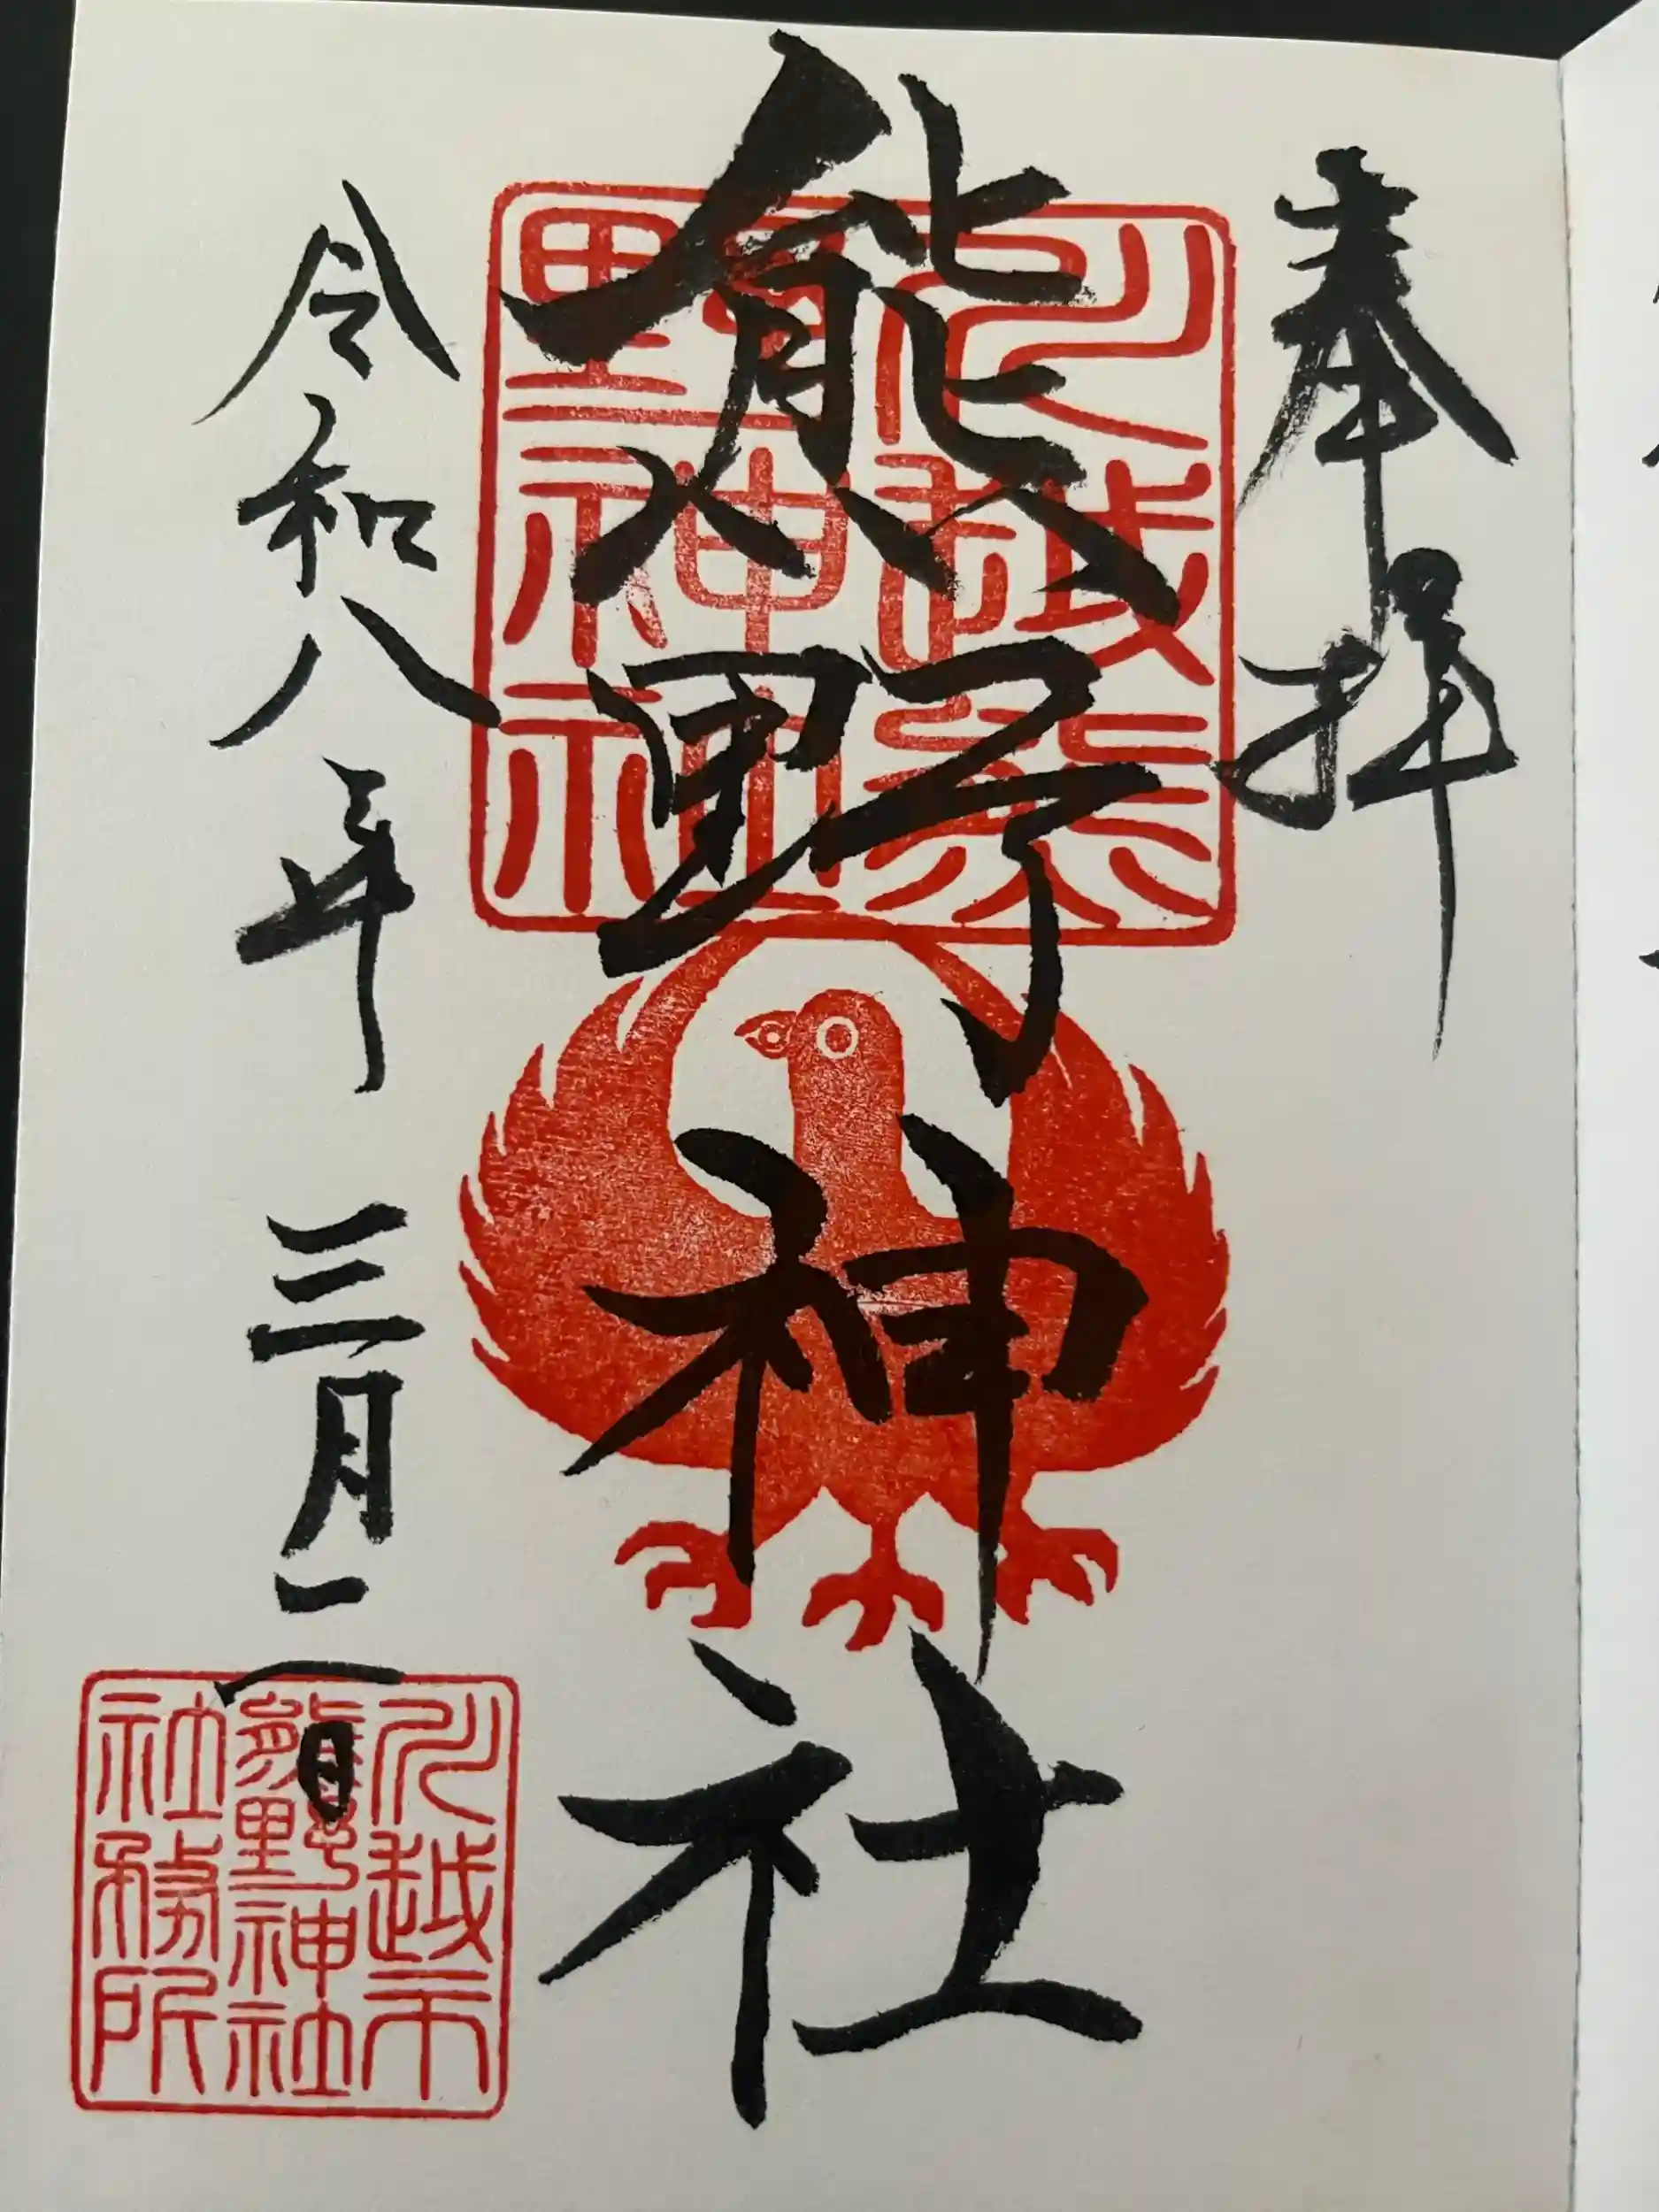 奉拝
熊野神社
令和八年三月二日
川越熊
野神社
川越市
熊野神社
社務所